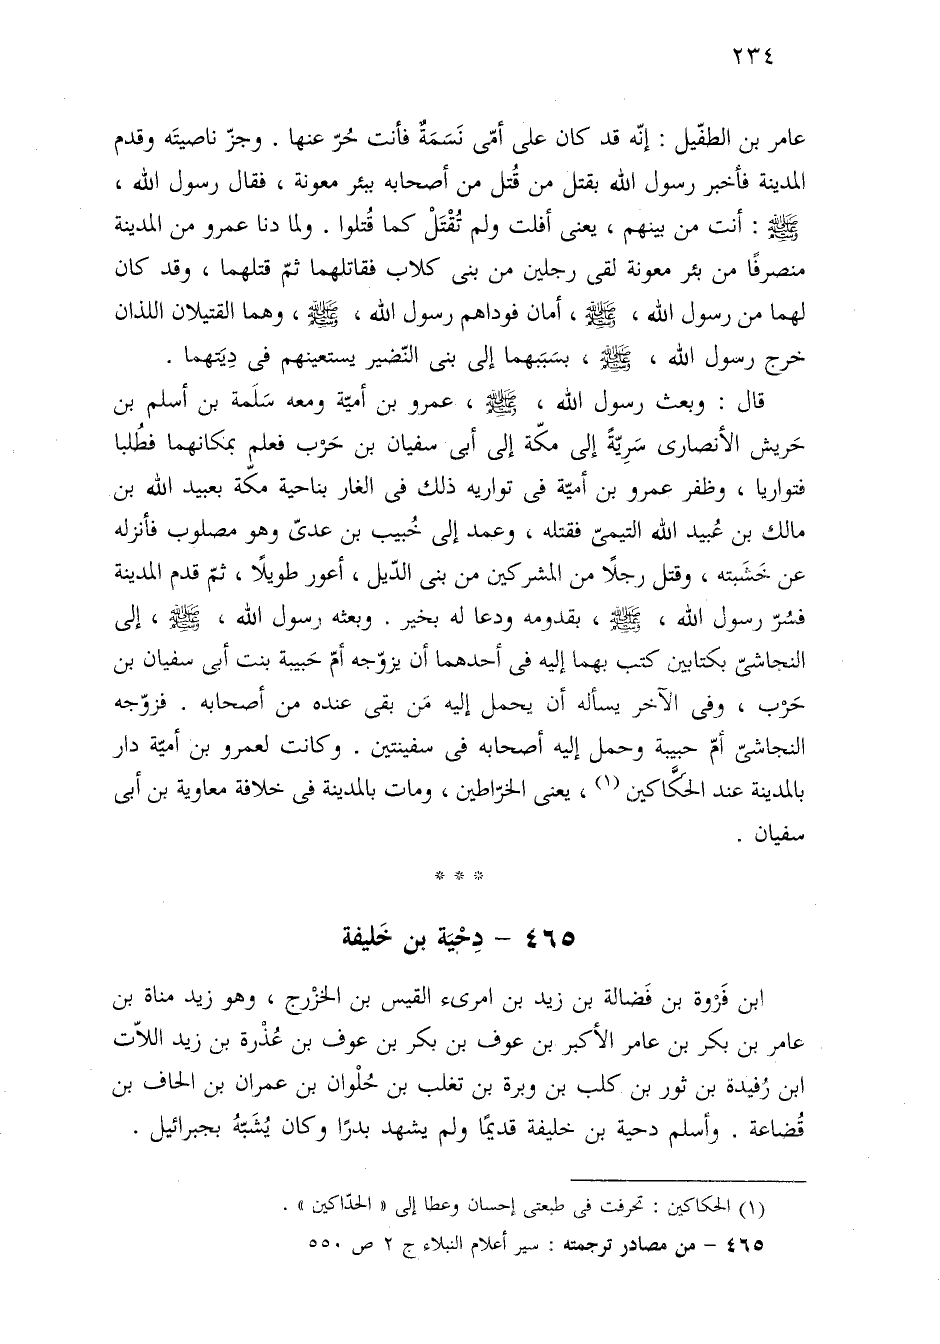 ٢٣٤
عامر بن الطفّيل : إنّه قد كان على أمّى نَسَمَةٌ فأنت حُرّ عنها . وجزّ ناصيتَه وقدم
المدينة فأخبر رسول الله بقتل من قُتل من أصحابه ببئر معونة ، فقال رسول الله ،
ﷺ : أنت من بينهم ، يعنى أفلت ولم تُقْتَلْ كما قُتلوا . ولما دنا عمرو من المدينة
منصرفًا من بئر معونة لقى رجلين من بنى كلاب فقاتلهما ثمّ قتلهما ، وقد كان
لهما من رسول الله ، ﷺ ، أمان فوداهم رسول الله ، ﷺ ، وهما القتيلان اللذان
خرج رسول الله ، ﷺ ، بسَبَبهما إلى بنى النّضير يستعينهم فى دِيَتهما .
قال : وبعث رسول الله ، ﷺ ، عمرو بن أميّة ومعه سَلَمة بن أسلم بن
حَريش الأنصارى سَرِيّةً إلى مكّة إلى أبى سفيان بن حَرْب فعلم بمكانهما فطُلبا
فتواريا ، وظفر عمرو بن أميّة فى تواريه ذلك فى الغار بناحية مكّة بعبيد الله بن
مالك بن عُبيد الله التيمىّ فقتله ، وعمد إلى خُبيب بن عدىّ وهو مصلوب فأنزله
عن خَشَبته ، وقتل رجلًا من المشركين من بنى الدّيل ، أعور طويلًا ، ثمّ قدم المدينة
فسُرّ رسول الله ، ﷺ ، بقدومه ودعا له بخير . وبعثه رسول الله ، ﷺ ، إلى
النجاشىّ بكتابين كتب بهما إليه فى أحدهما أن يزوّجه أمّ حَبيبة بنت أبى سفيان بن
حَرْب ، وفى الآخر يسأله أن يحمل إليه مَن بقى عنده من أصحابه . فزوّجه
النجاشىّ أمّ حبيبة وحمل إليه أصحابه فى سفينتين . وكانت لعمرو بن أميّة دار
بالمدينة عند الحَكَّاكين (١) ، يعنى الخرّاطين ، ومات بالمدينة فى خلافة معاوية بن أبى
سفيان .
* * *
٤٦٥ – دِحْيَة بن خَليفة
ابن فَرْوة بن فَضالة بن زيد بن امرىء القيس بن الخَزْرج ، وهو زيد مناة بن
عامر بن بكر بن عامر الأكبر بن عوف بن بكر بن عوف بن عُذْرة بن زيد اللاّت
ابن رُفيدة بن ثور بن كلب بن وبرة بن تغلب بن حُلْوان بن عمران بن الحاف بن
قُضاعة . وأسلم دحية بن خليفة قديمًا ولم يشهد بدرًا وكان يُشَبَّهُ بجبرائيل .
(١) الحكاكين : تحرفت فى طبعتى إحسان وعطا إلى « الحدّاكين » .
٤٦٥ – من مصادر ترجمته : سير أعلام النبلاء ج ٢ ص ٥٥٠